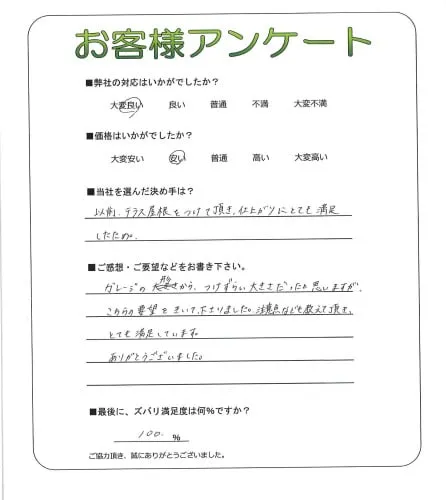 お客様アンケート
■弊社の対応はいかがでしたか？
大変良い 良い 普通 不満 大変不満
■価格はいかがでしたか？
大変安い 安い 普通 高い 大変高い
■当社を選んだ決め手は？
以前、テラス屋根をつけて頂き、仕上がりにとても満足
したため。
■ご感想・ご要望などをお書き下さい。
ガレージの形から、つけずらい大きさだったと思いますが、
こちらの要望をきいて下さりました。注意点なども教えて頂き、
とても満足しています。
ありがとうございました。
■最後に、ズバリ満足度は何％ですか？
100. ％
ご協力頂き、誠にありがとうございました。